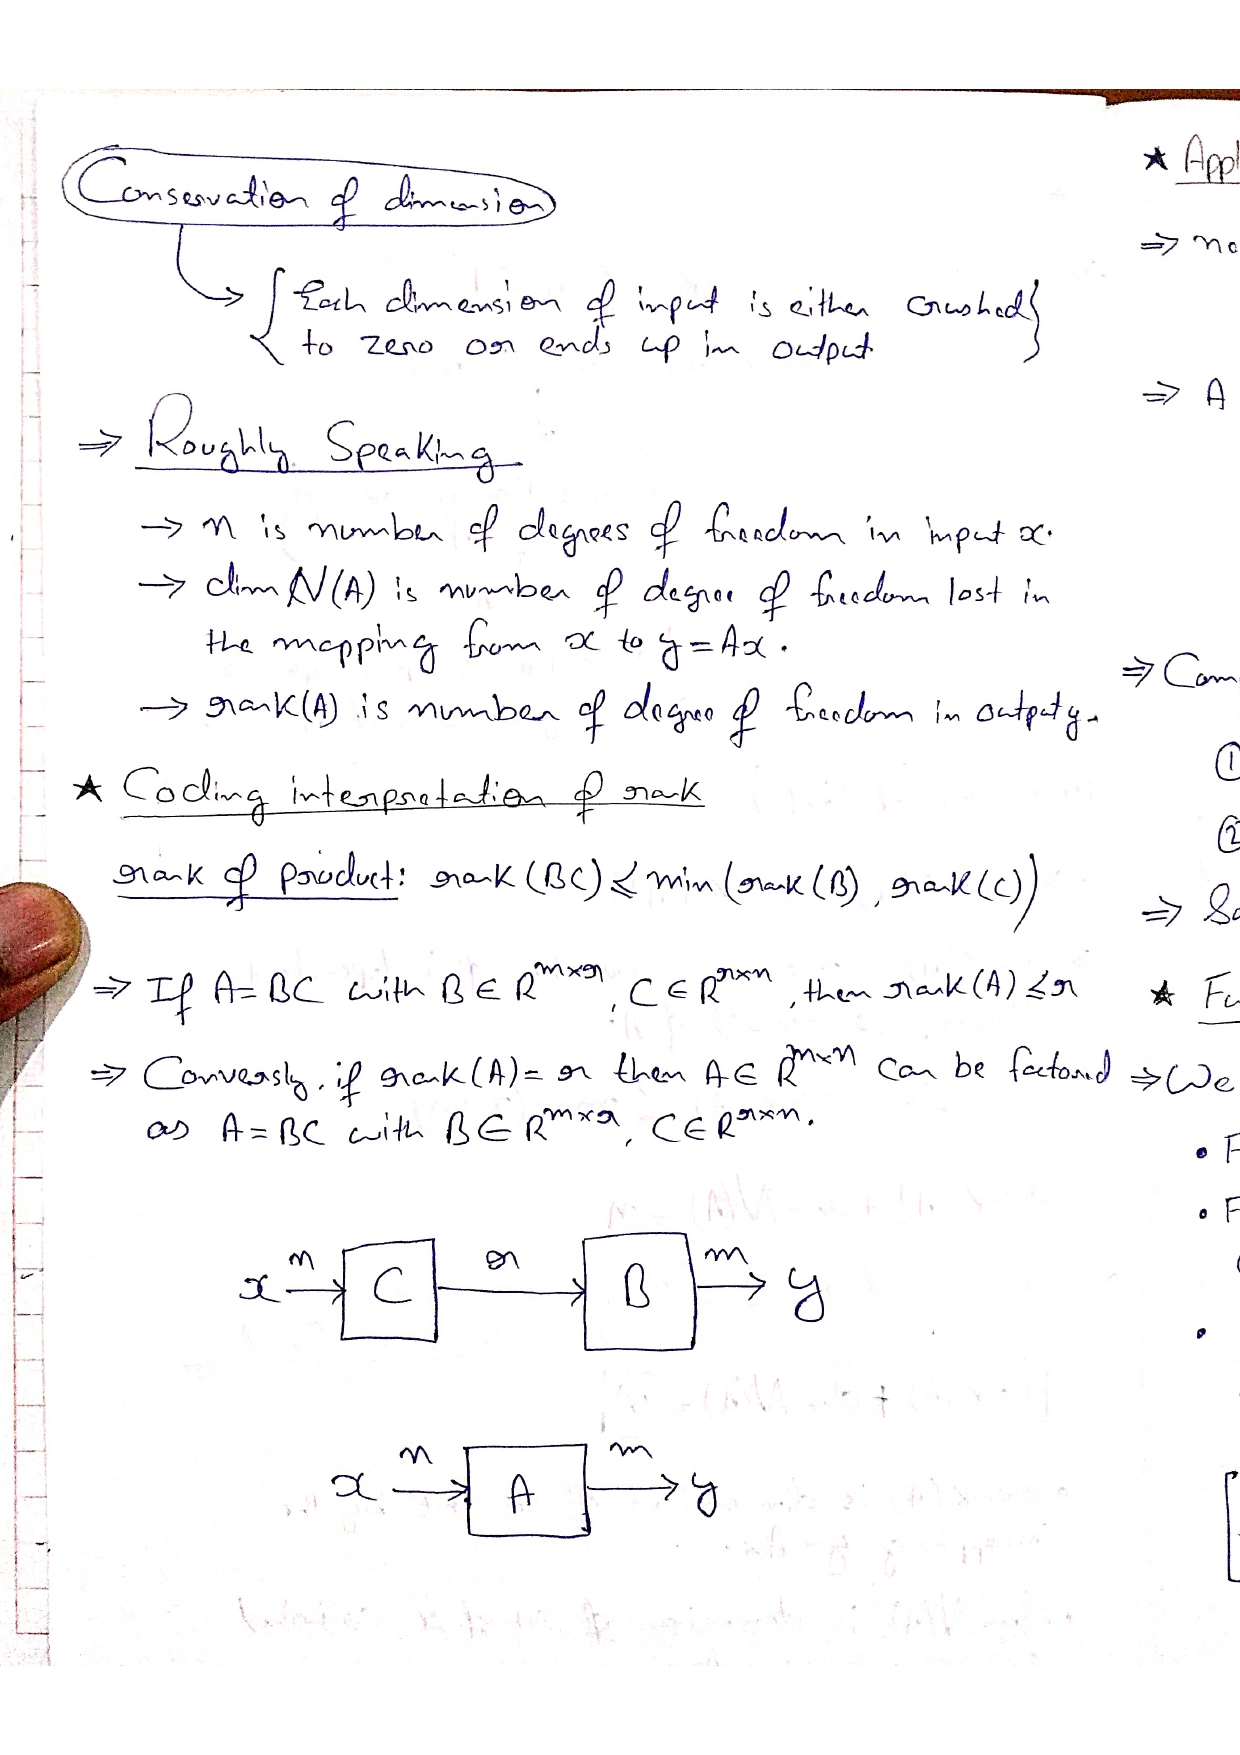 Conservation of dimension
→ { Each dimension of input is either crushed }
to zero or ends up in output
⇒ Roughly Speaking
→ n is number of degrees of freedom in input x.
→ dim N(A) is number of degree of freedom lost in
the mapping from x to y = Ax.
→ rank(A) is number of degree of freedom in output y.
★ Coding interpretation of rank
rank of product: rank (BC) ≤ min (rank (B), rank (C))
⇒ If A = BC with B ∈ R^{m×r}, C ∈ R^{r×n}, then rank (A) ≤ r
⇒ Conversly, if rank (A) = r then A ∈ R^{m×n} can be factored
as A = BC with B ∈ R^{m×r}, C ∈ R^{r×n}.
x n → C r → B m → y
x n → A m → y
★ Appl
⇒ no
⇒ A
⇒ Com
①
②
⇒ So
★ Fu
⇒ We
• F
• F
•
[